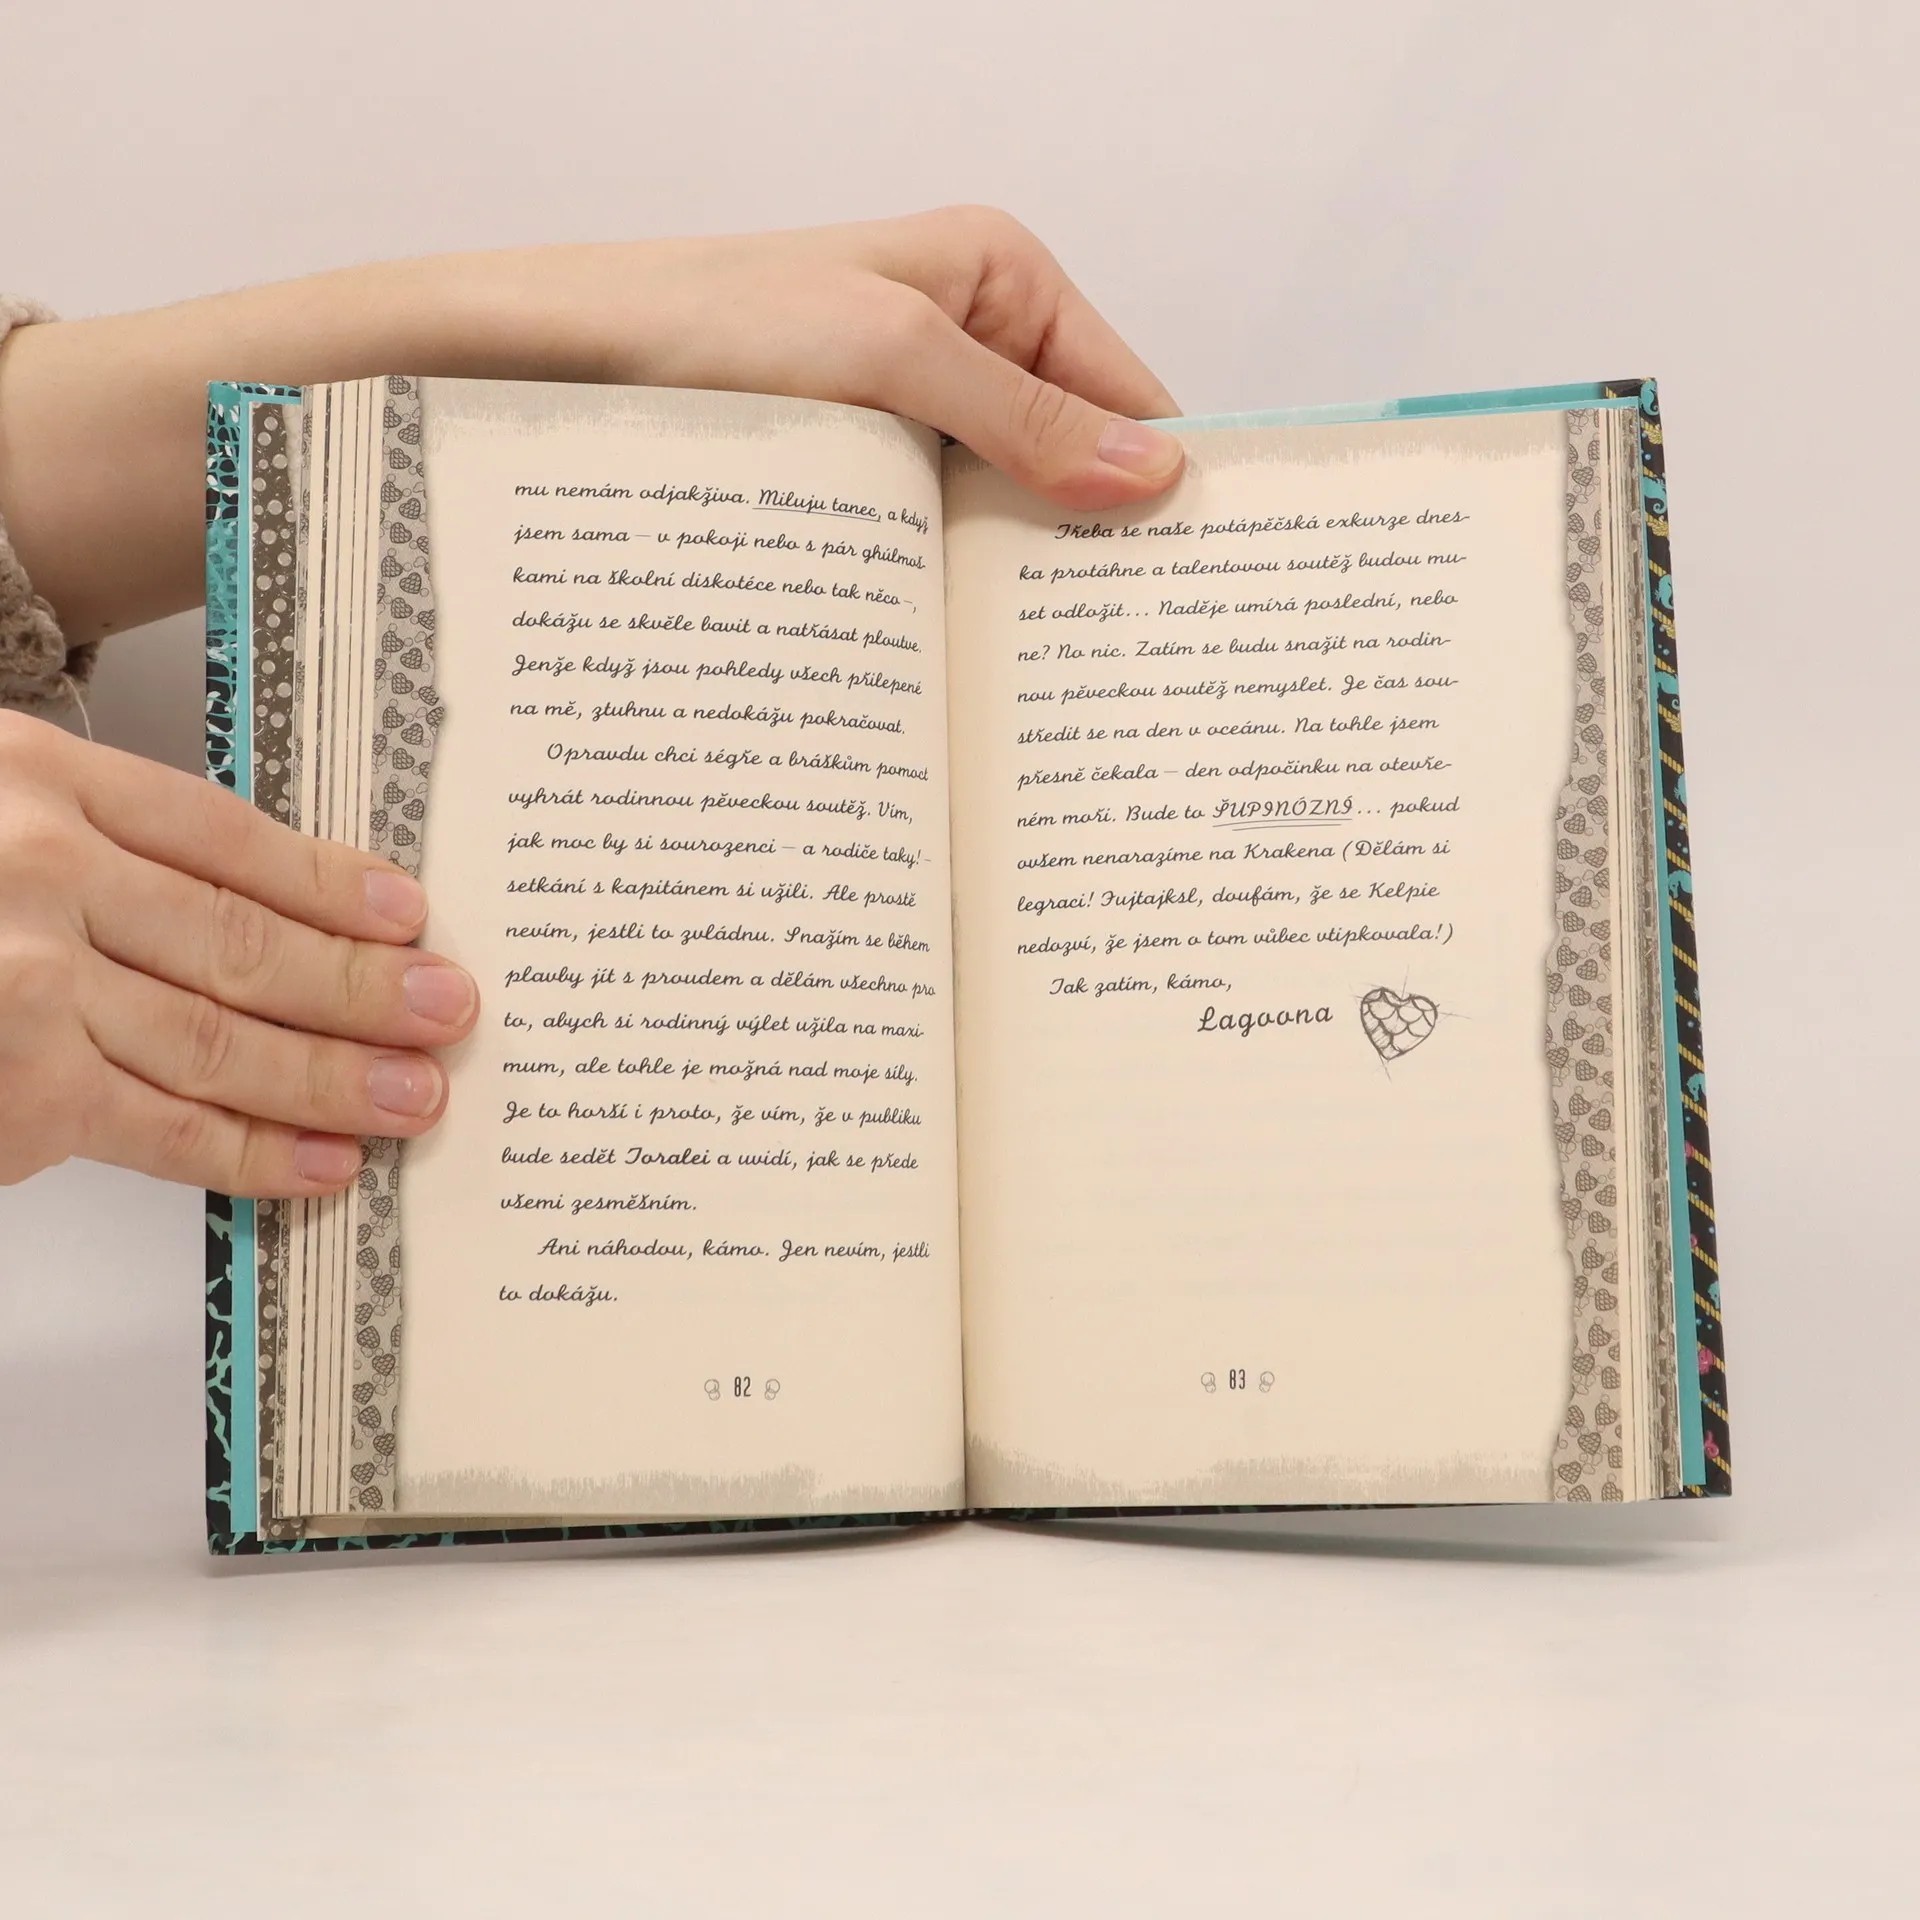 mu nemám odjakživa. Miluju tanec, a když
jsem sama – v pokoji nebo s pár ghúlmoš-
kami na školní diskotéce nebo tak něco –,
dokážu se skvěle bavit a natřásat ploutve.
Jenže když jsou pohledy všech přilepené
na mě, ztuhnu a nedokážu pokračovat.
Opravdu chci ségře a bráškům pomoct
vyhrát rodinnou pěveckou soutěž. Vím,
jak moc by si sourozenci – a rodiče taky! –
setkání s kapitánem si užili. Ale prostě
nevím, jestli to zvládnu. Snažím se během
plavby jít s proudem a dělám všechno pro
to, abych si rodinný výlet užila na maxi-
mum, ale tohle je možná nad moje síly.
Je to horší i proto, že vím, že v publiku
bude sedět Toralei a uvidí, jak se přede
všemi zesměšním.
Ani náhodou, kámo. Jen nevím, jestli
to dokážu.
82
Třeba se naše potápěčská exkurze dnes-
ka protáhne a talentovou soutěž budou mu-
set odložit... Naděje umírá poslední, nebo
ne? No nic. Zatím se budu snažit na rodin-
nou pěveckou soutěž nemyslet. Je čas sou-
středit se na den v oceánu. Na tohle jsem
přesně čekala – den odpočinku na otevře-
ném moři. Bude to ŠUPINÓZNÍ... pokud
ovšem nenarazíme na Krakena (Dělám si
legraci! Fujtajksl, doufám, že se Kelpie
nedozví, že jsem o tom vůbec vtipkovala!)
Tak zatím, kámo,
Lagoona
83